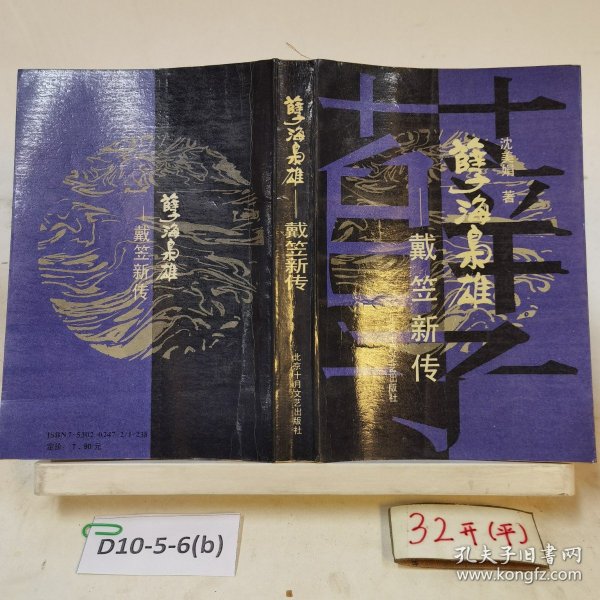 孽海枭雄
——戴笠新传
ISBN 7-5302-0247-2/I·238
定价：7.90元
孽海枭雄——戴笠新传
北京十月文艺出版社
孽
沈美娟 著
孽海枭雄
——戴笠新传
出版社
D10-5-6(b)
32开(平)
孔夫子旧书网
www.kongfz.com